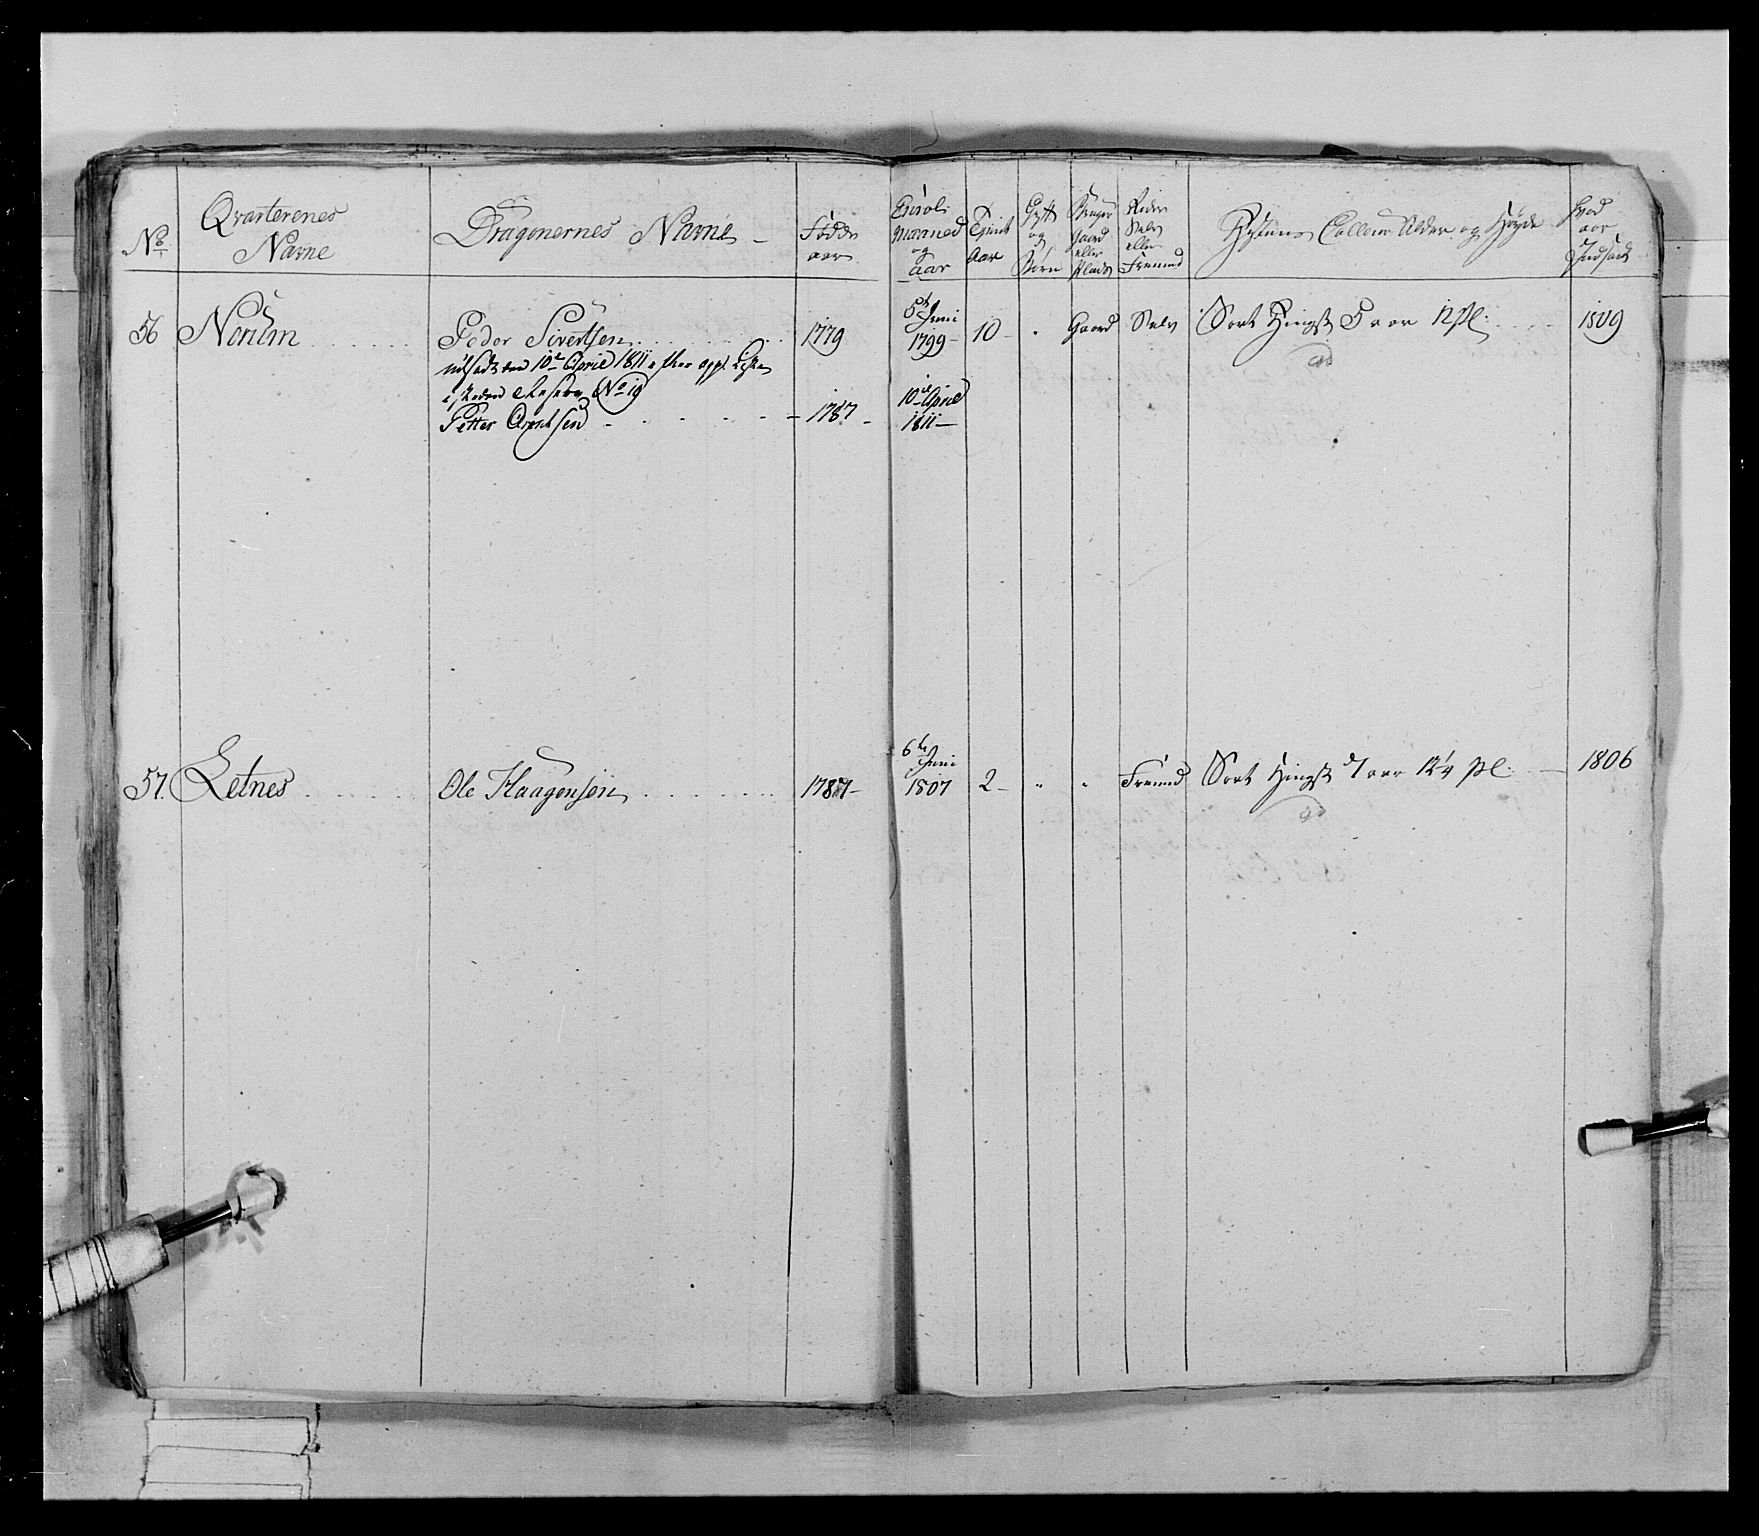 No
Qvarterenes
Navne
Dragonernes Navne
Fødde
aar
Enrol:
Maaned
og
Aar
Tjent
Aar
Gift
og
Børn
Gaard
eller
Plads
Rider
Selv
eller
Fremd
Hestens Colleur Alder og Høyde
Hvad
aar
Indsadt
56 Nordm
Peder Sivertsen
1779
5te Juni
1799
10
"
Gaard
Selv
Sort Hingst 5 aar 12 pl:
1809
udsadt den 10de April 1811
Reserve No 19
Petter Arentsen
1787
10de April
1811
57. Letnes
Ole Haagensen
1787
6te Juni
1807
2
"
"
Fremd
Sort Hingst 7 aar 12 1/4 pl:
1806